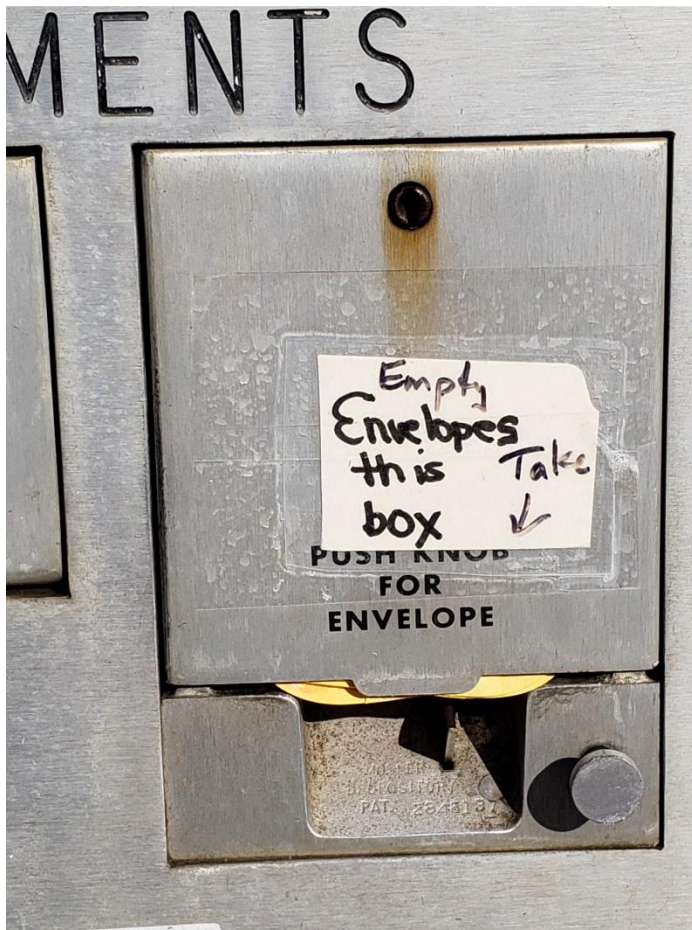 MENTS
Empty
Envelopes
this Take
box ↓
PUSH KNOB
FOR
ENVELOPE
DEPOSITORY
PAT.